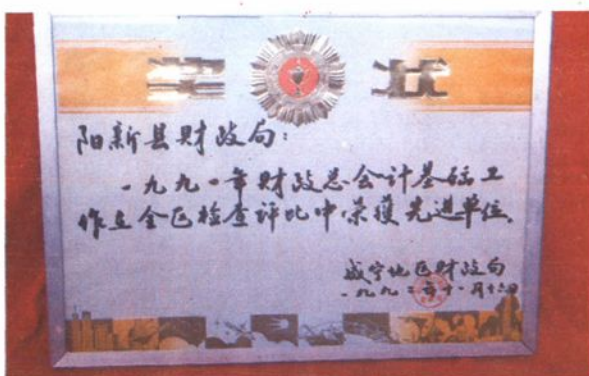 奖状
阳新县财政局：
一九九一年财政总会计基础工
作在全区检查评比中，荣获先进单位。
咸宁地区财政局
一九九二年十一月十六日